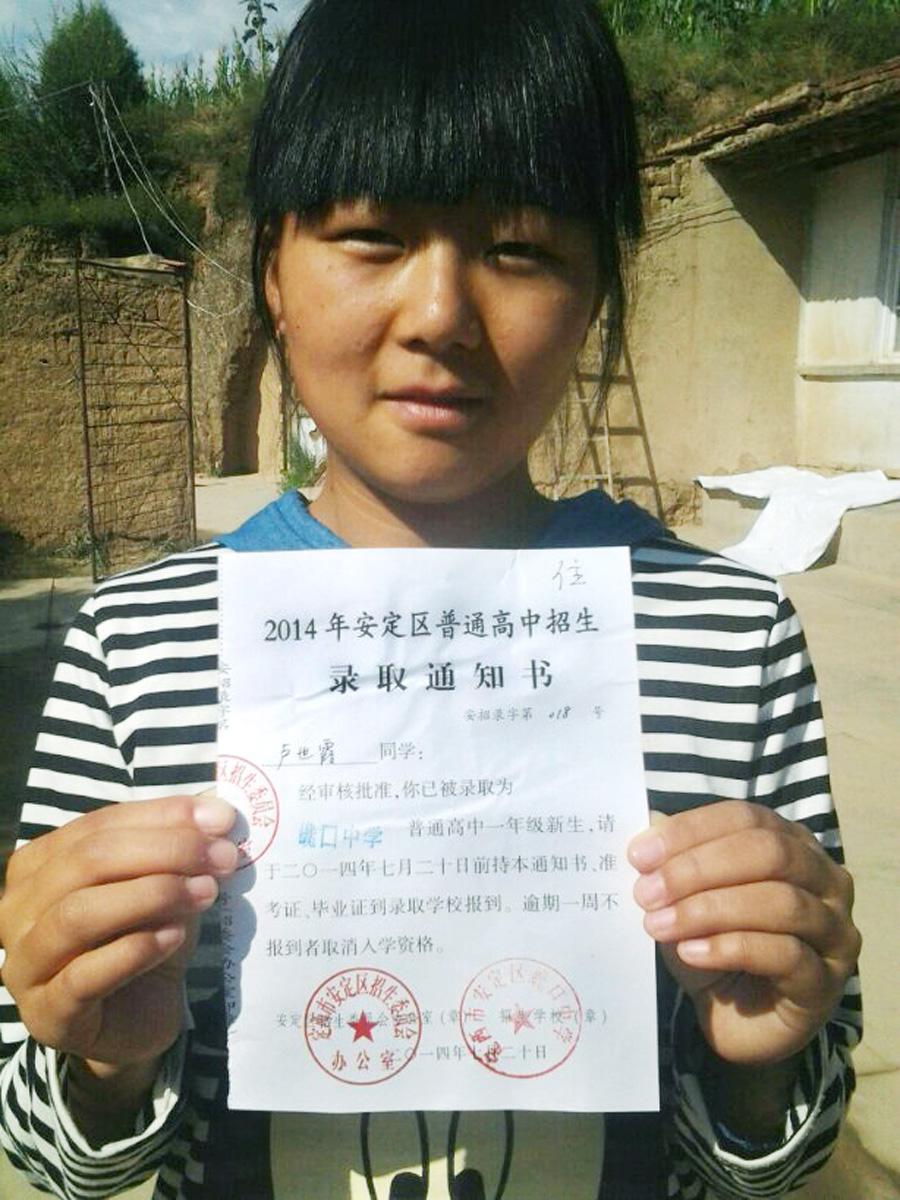 住
2014年安定区普通高中招生
录取通知书
安招录字第 018 号
卢世霞 同学:
经审核批准,你已被录取为
巉口中学 普通高中一年级新生,请
于二〇一四年七月二十日前持本通知书、准
考证、毕业证到录取学校报到。逾期一周不
报到者取消入学资格。
区招生委员会
定西市安定区招生委员会
办公室
定西市安定区巉口中学
二〇一四年七月二十日